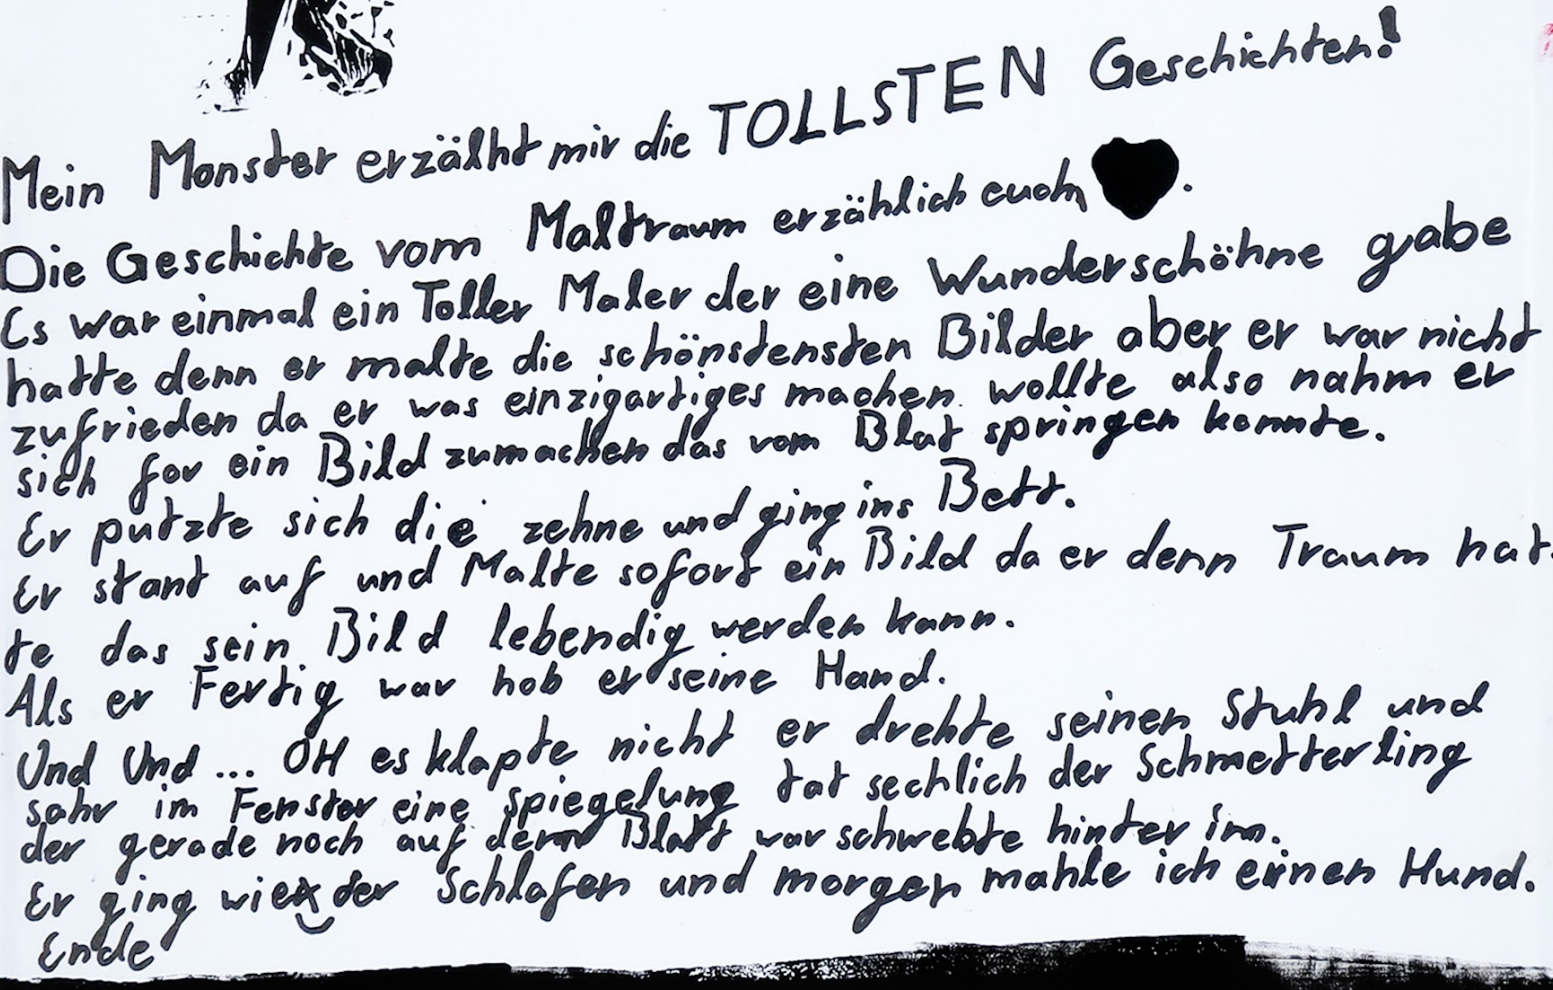 Mein Monster erzälht mir die TOLLSTEN Geschichten!
Die Geschichte vom Maltraum erzählich euch ♥.
Es war einmal ein Toller Maler der eine Wunderschöhne gabe
hatte denn er malte die schönstensten Bilder aber er war nicht
zufrieden da er was einzigartiges machen wollte also nahm er
sich for ein Bild zumachen das vom Blat springen konnte.
Er putzte sich die zehne und ging ins Bett.
Er stant auf und Malte sofort ein Bild da er denn Traum hat-
te das sein Bild lebendig werden kann.
Als er Fertig war hob er seine Hand.
Und Und ... OH es klapte nicht er drehte seinen Stuhl und
sahr im Fenster eine spiegelung tat sechlich der Schmetterling
der gerade noch auf dem Blatt war schwebte hinter im.
Er ging wieder Schlafen und morgen mahle ich einen Hund.
Ende